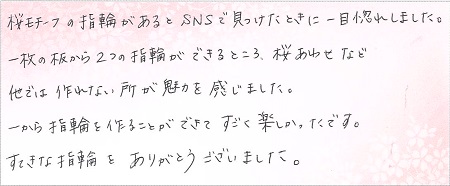 桜モチーフの指輪があるとSNSで見つけたときに一目惚れしました。
一枚の板から2つの指輪ができるところ、桜あわせなど
他では作れない所が魅力を感じました。
一から指輪を作ることができてすごく楽しかったです。
すてきな指輪をありがとうございました。